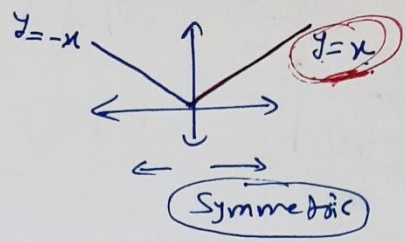 y=-x
y=x
Symmetric